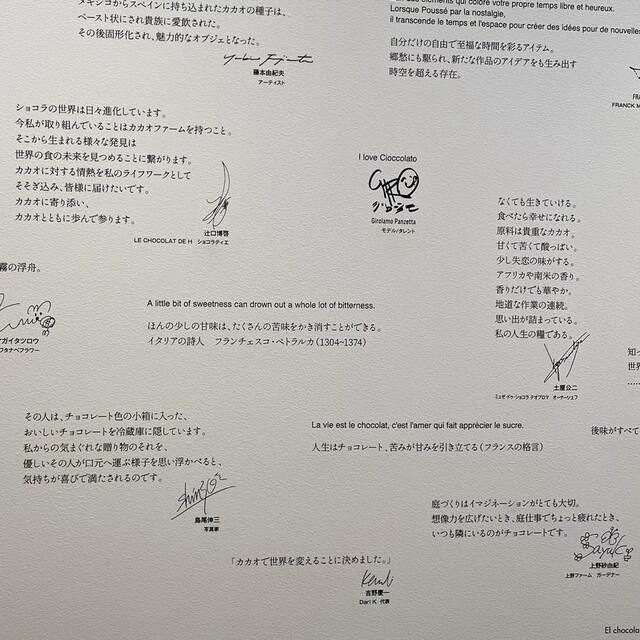 メキシコからスペインに持ち込まれたカカオの種子は、
ペースト状にされ貴族に愛飲された。
その後固形化され、魅力的なオブジェとなった。
藤本由紀夫
アーティスト
éléments qui colore votre propre temps libre et heureux.
Lorsque Poussé par la nostalgie,
il transcende le temps et l'espace pour créer des idées pour de nouvelles
自分だけの自由で至福な時間を彩るアイテム。
郷愁にも駆られ、新たな作品のアイデアをも生み出す
時空を超える存在。
FRANCK M
ショコラの世界は日々進化しています。
今私が取り組んでいることはカカオファームを持つこと。
そこから生まれる様々な発見は
世界の食の未来を見つめることに繋がります。
カカオに対する情熱を私のライフワークとして
そそぎ込み、皆様に届けたいです。
カカオに寄り添い、
カカオとともに歩んで参ります。
辻口博啓
LE CHOCOLAT DE H ショコラティエ
I love Cioccolato
Girolamo Panzetta
モデル/タレント
なくても生きていける。
食べたら幸せになれる。
原料は貴重なカカオ。
甘くて苦くて酸っぱい。
少し失恋の味がする。
アフリカや南米の香り。
香りだけでも華やか。
地道な作業の連続。
思い出が詰まっている。
私の人生の糧である。
土屋公二
ミュゼ・ドゥ・ショコラ テオブロマ オーナーシェフ
霧の浮舟。
ガイタツロウ
タナベフラワー
A little bit of sweetness can drown out a whole lot of bitterness.
ほんの少しの甘味は、たくさんの苦味をかき消すことができる。
イタリアの詩人 フランチェスコ・ペトラルカ（1304~1374）
知っ
世界
その人は、チョコレート色の小箱に入った、
おいしいチョコレートを冷蔵庫に隠しています。
私からの気まぐれな贈り物のそれを、
優しいその人が口元へ運ぶ様子を思い浮かべると、
気持ちが喜びで満たされるのです。
島尾伸三
写真家
La vie est le chocolat, c'est l'amer qui fait apprécier le sucre.
人生はチョコレート、苦みが甘みを引き立てる（フランスの格言）
後味がすべて
庭づくりはイマジネーションがとても大切。
想像力を広げたいとき、庭仕事でちょっと疲れたとき、
いつも隣にいるのがチョコレートです。
上野砂由紀
上野ファーム ガーデナー
「カカオで世界を変えることに決めました。」
吉野慶一
Dari K 代表
El chocola